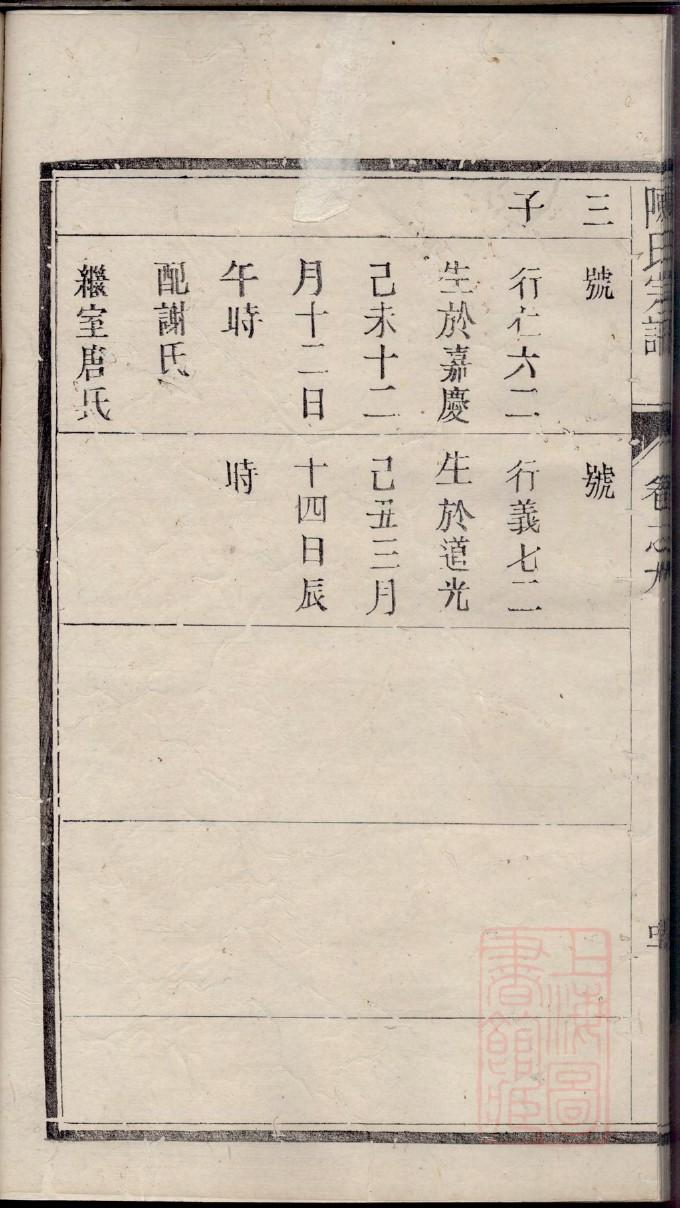 陳氏宗譜
卷之九
三
子
號
行仁六二
生於嘉慶
己未十二
月十二日
午時
配謝氏
繼室唐氏
號
行義七二
生於道光
己丑三月
十四日辰
時
上海圖
書館藏